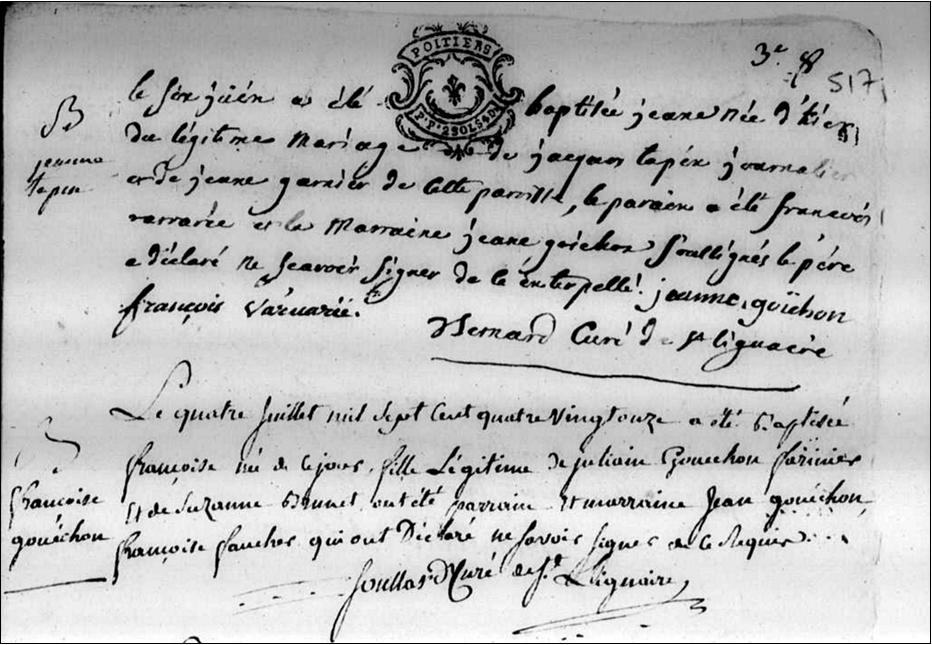 POITIERS
3e
517
P.P. 2 SOLS 4 D
B
jeanne
tapin
le six juien a été baptisée jeane née d'hier
du légitime mariage de jacques tapin journalier
et de jeane garnier de cette paroisse, le parain a été francois
varvarée et la Marraine jeane goichon soussignés le père
a déclaré ne scavoir signer de ce enterpellé. jeanne. goüchon
françois Varvarée.
Bernard Curé de St liguaire
Le quatre Juillet mil sept Cent quatre Vingt onze a été Baptisée
françoise né de ce jour, fille Légitime de juliain Gouechon farinier
Et de Suzanne Bonnet, ont été parrain Et marraine Jean gouéchon,
françoise fauches qui ont Déclaré ne savoir signer de ce Requis...
Curé de St. Liguaire
francoise
gouéchon